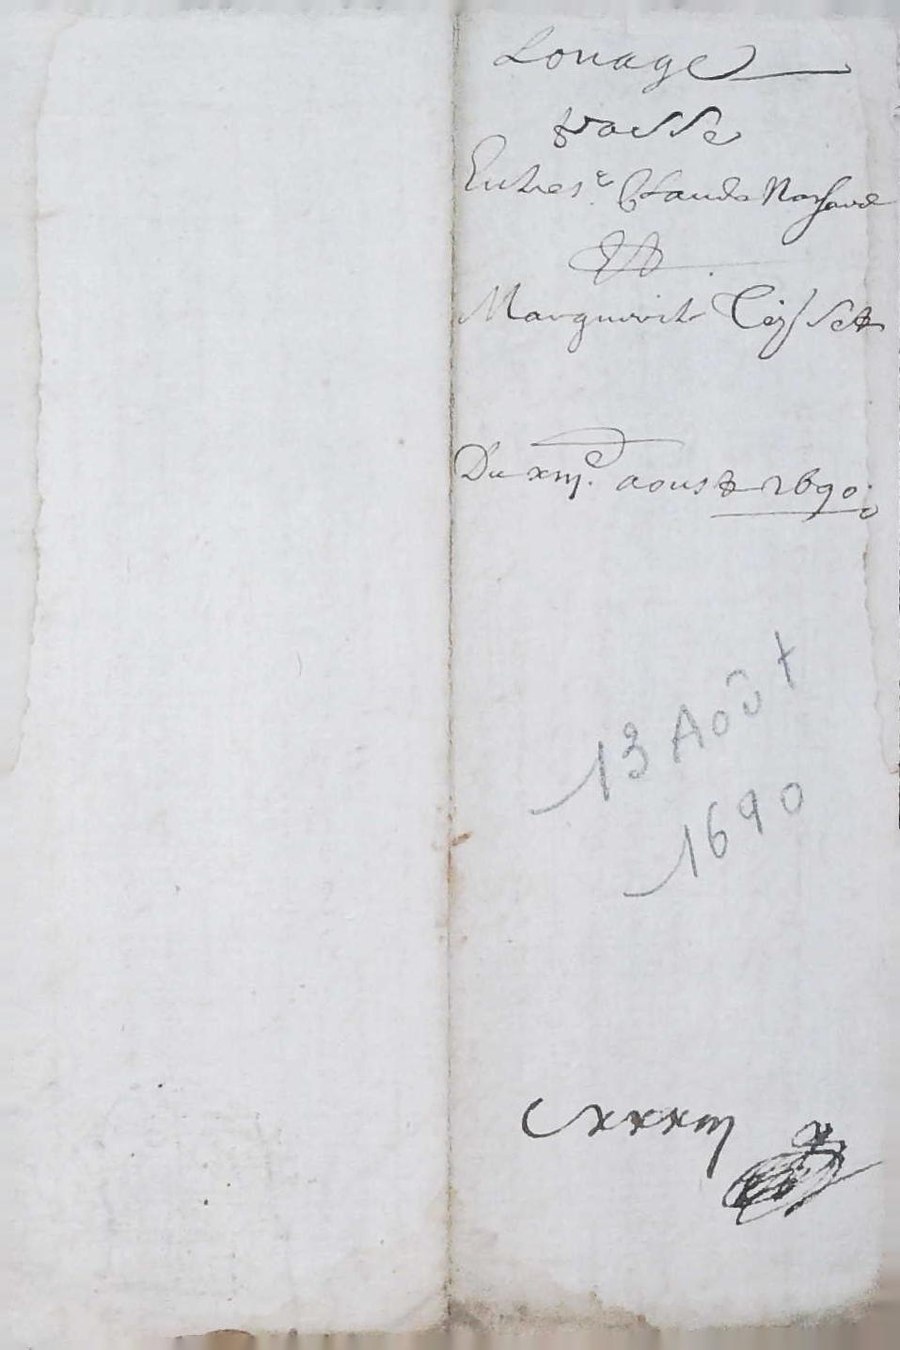 Louage
passe
Entre s.ʳ Claude
Et
Marguerit Teisset
Du xiijᵉ. aoust 1690.
13 Août
1690
Cxxxiij